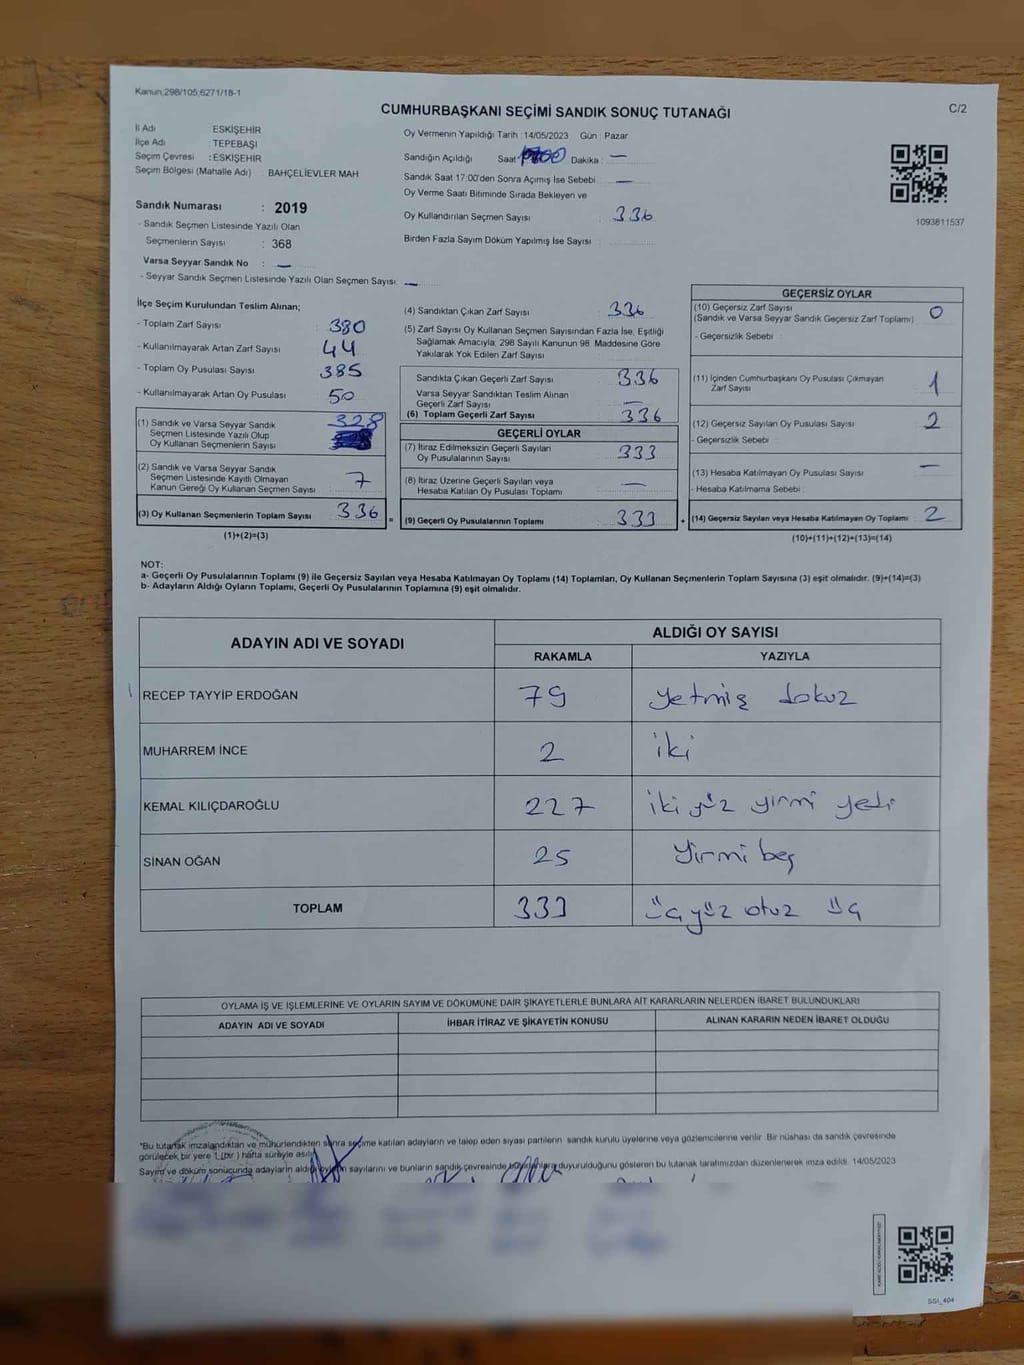 Kanun;298/105;6271/18-1
CUMHURBAŞKANI SEÇİMİ SANDIK SONUÇ TUTANAĞI
C/2
İl Adı ESKİŞEHİR
İlçe Adı TEPEBAŞI
Seçim Çevresi : ESKİŞEHİR
Seçim Bölgesi (Mahalle Adı) : BAHÇELİEVLER MAH
Sandık Numarası : 2019
- Sandık Seçmen Listesinde Yazılı Olan
Seçmenlerin Sayısı : 368
Varsa Seyyar Sandık No : —
- Seyyar Sandık Seçmen Listesinde Yazılı Olan Seçmen Sayısı: —
Oy Vermenin Yapıldığı Tarih : 14/05/2023 Gün : Pazar
Sandığın Açıldığı Saat Dakika : —
Sandık Saat 17:00'den Sonra Açımış İse Sebebi : —
Oy Verme Saati Bitiminde Sırada Bekleyen ve
Oy Kullandırılan Seçmen Sayısı : 336
Birden Fazla Sayım Döküm Yapılmış İse Sayısı :
1093811537
İlçe Seçim Kurulundan Teslim Alınan;
- Toplam Zarf Sayısı : 380
- Kullanılmayarak Artan Zarf Sayısı : 44
- Toplam Oy Pusulası Sayısı : 385
- Kullanılmayarak Artan Oy Pusulası : 50
(1) Sandık ve Varsa Seyyar Sandık 328
Seçmen Listesinde Yazılı Olup
Oy Kullanan Seçmenlerin Sayısı
(2) Sandık ve Varsa Seyyar Sandık
Seçmen Listesinde Kayıtlı Olmayan
Kanun Gereği Oy Kullanan Seçmen Sayısı : 7
(3) Oy Kullanan Seçmenlerin Toplam Sayısı : 336
(1)+(2)=(3)
(4) Sandıktan Çıkan Zarf Sayısı : 336
(5) Zarf Sayısı Oy Kullanan Seçmen Sayısından Fazla İse, Eşitliği
Sağlamak Amacıyla; 298 Sayılı Kanunun 98. Maddesine Göre
Yakılarak Yok Edilen Zarf Sayısı :
Sandıkta Çıkan Geçerli Zarf Sayısı : 336
Varsa Seyyar Sandıktan Teslim Alınan
Geçerli Zarf Sayısı : —
(6) Toplam Geçerli Zarf Sayısı : 336
GEÇERLİ OYLAR
(7) İtiraz Edilmeksizin Geçerli Sayılan
Oy Pusulalarının Sayısı : 333
(8) İtiraz Üzerine Geçerli Sayılan veya
Hesaba Katılan Oy Pusulası Toplamı : —
= (9) Geçerli Oy Pusulalarının Toplamı : 333
GEÇERSİZ OYLAR
(10) Geçersiz Zarf Sayısı : 0
(Sandık ve Varsa Seyyar Sandık Geçersiz Zarf Toplamı)
- Geçersizlik Sebebi :
(11) İçinden Cumhurbaşkanı Oy Pusulası Çıkmayan
Zarf Sayısı : 1
(12) Geçersiz Sayılan Oy Pusulası Sayısı : 2
- Geçersizlik Sebebi :
(13) Hesaba Katılmayan Oy Pusulası Sayısı : —
- Hesaba Katılmama Sebebi :
+ (14) Geçersiz Sayılan veya Hesaba Katılmayan Oy Toplamı : 2
(10)+(11)+(12)+(13)=(14)
NOT:
a- Geçerli Oy Pusulalarının Toplamı (9) ile Geçersiz Sayılan veya Hesaba Katılmayan Oy Toplamı (14) Toplamları, Oy Kullanan Seçmenlerin Toplam Sayısına (3) eşit olmalıdır. (9)+(14)=(3)
b- Adayların Aldığı Oyların Toplamı, Geçerli Oy Pusulalarının Toplamına (9) eşit olmalıdır.
ADAYIN ADI VE SOYADI ALDIĞI OY SAYISI
RAKAMLA YAZIYLA
RECEP TAYYİP ERDOĞAN 79 yetmiş dokuz
MUHARREM İNCE 2 iki
KEMAL KILIÇDAROĞLU 227 iki yüz yirmi yedi
SİNAN OĞAN 25 yirmi beş
TOPLAM 333 üç yüz otuz üç
OYLAMA İŞ VE İŞLEMLERİNE VE OYLARIN SAYIM VE DÖKÜMÜNE DAİR ŞİKAYETLERLE BUNLARA AİT KARARLARIN NELERDEN İBARET BULUNDUKLARI
ADAYIN ADI VE SOYADI İHBAR İTİRAZ VE ŞİKAYETİN KONUSU ALINAN KARARIN NEDEN İBARET OLDUĞU
"Bu tutanak imzalandıktan ve mühürlendikten sonra seçime katılan adayların ve talep eden siyasi partilerin sandık kurulu üyelerine veya gözlemcilerine verilir. Bir nüshası da sandık çevresinde
görülecek bir yere 1 (bir) hafta süreyle asılır.
Sayım ve döküm sonucunda adayların aldığı oyların sayılarını ve bunların sandık çevresinde duyurulduğunu gösteren bu tutanak tarafımızdan düzenlenerek imza edildi. 14/05/2023
SSI_404